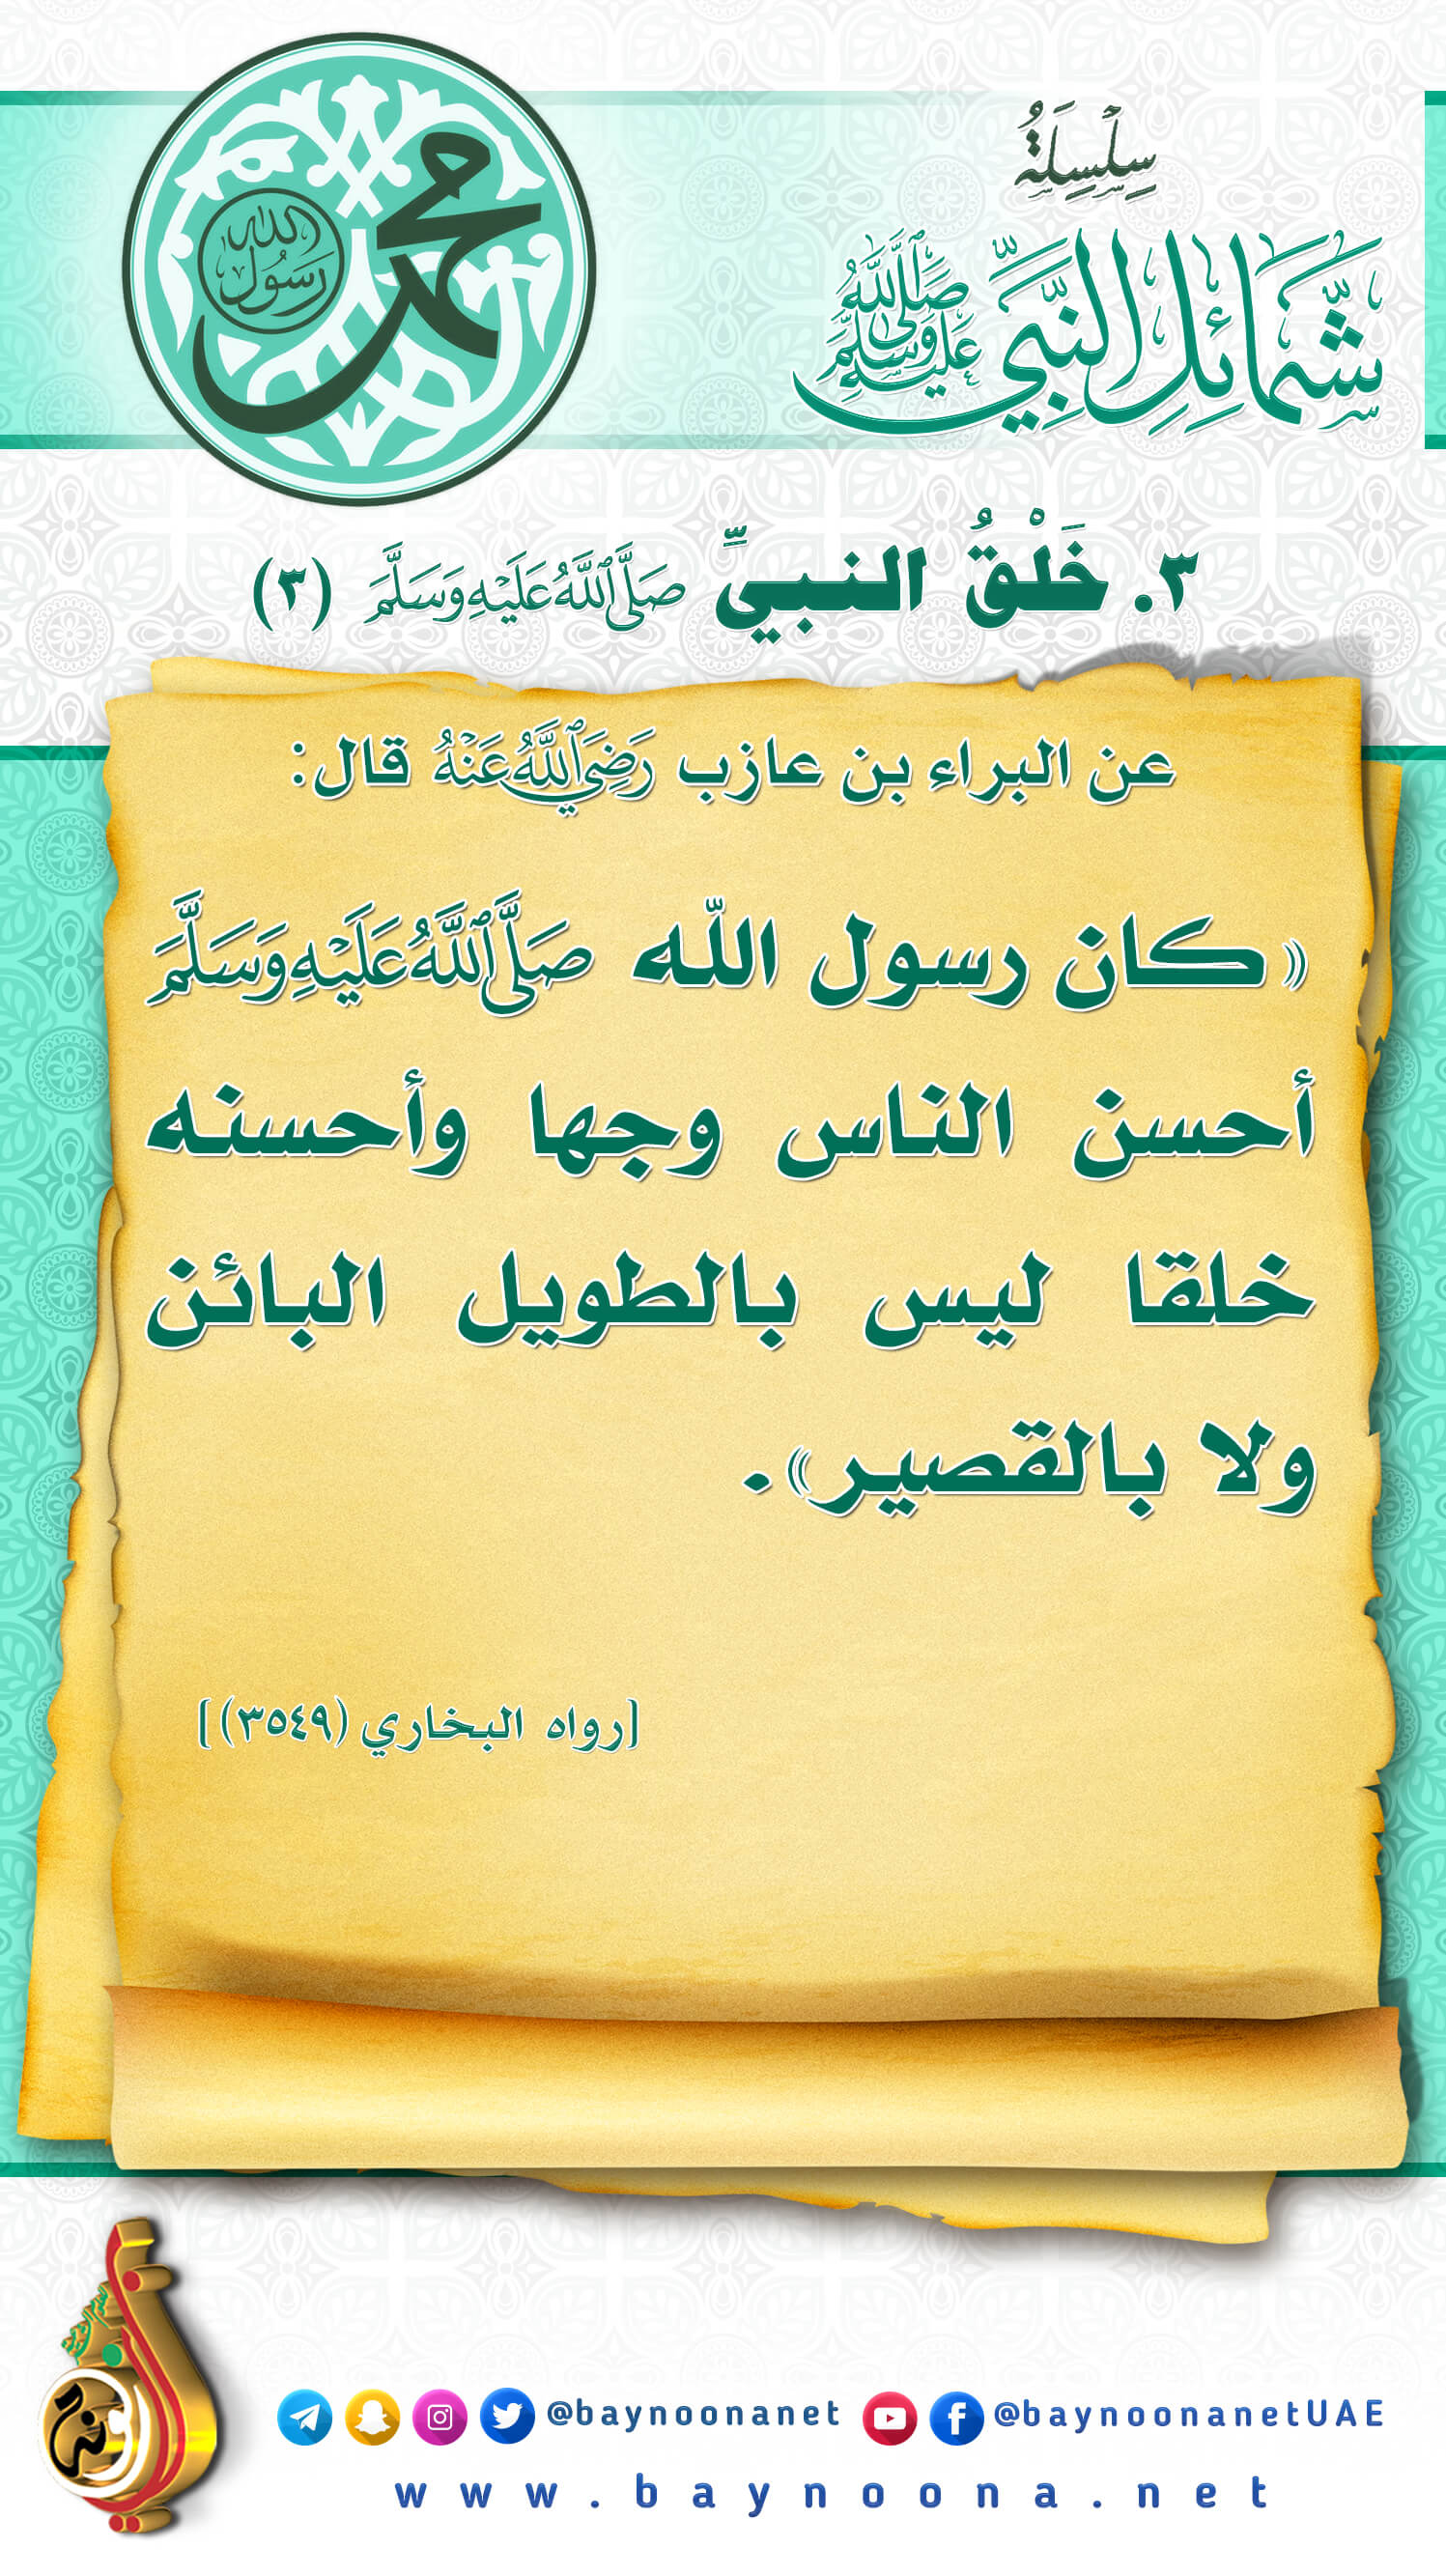 سِلْسِلَةُ
شَمَائِلِ النَّبِيِّ صَلَّى اللَّهُ عَلَيْهِ وَسَلَّمَ
محمد
رَسُول
الله
٣. خَلْقُ النبيِّ صَلَّى اللَّهُ عَلَيْهِ وَسَلَّمَ (٣)
عن البراء بن عازب رَضِيَ اللَّهُ عَنْهُ قال:
«كان رسول الله صَلَّى اللَّهُ عَلَيْهِ وَسَلَّمَ
أحسن الناس وجها وأحسنه
خلقا ليس بالطويل البائن
ولا بالقصير».
[رواه البخاري (٣٥٤٩)]
@baynoonanet @baynoonanetUAE
www.baynoona.net